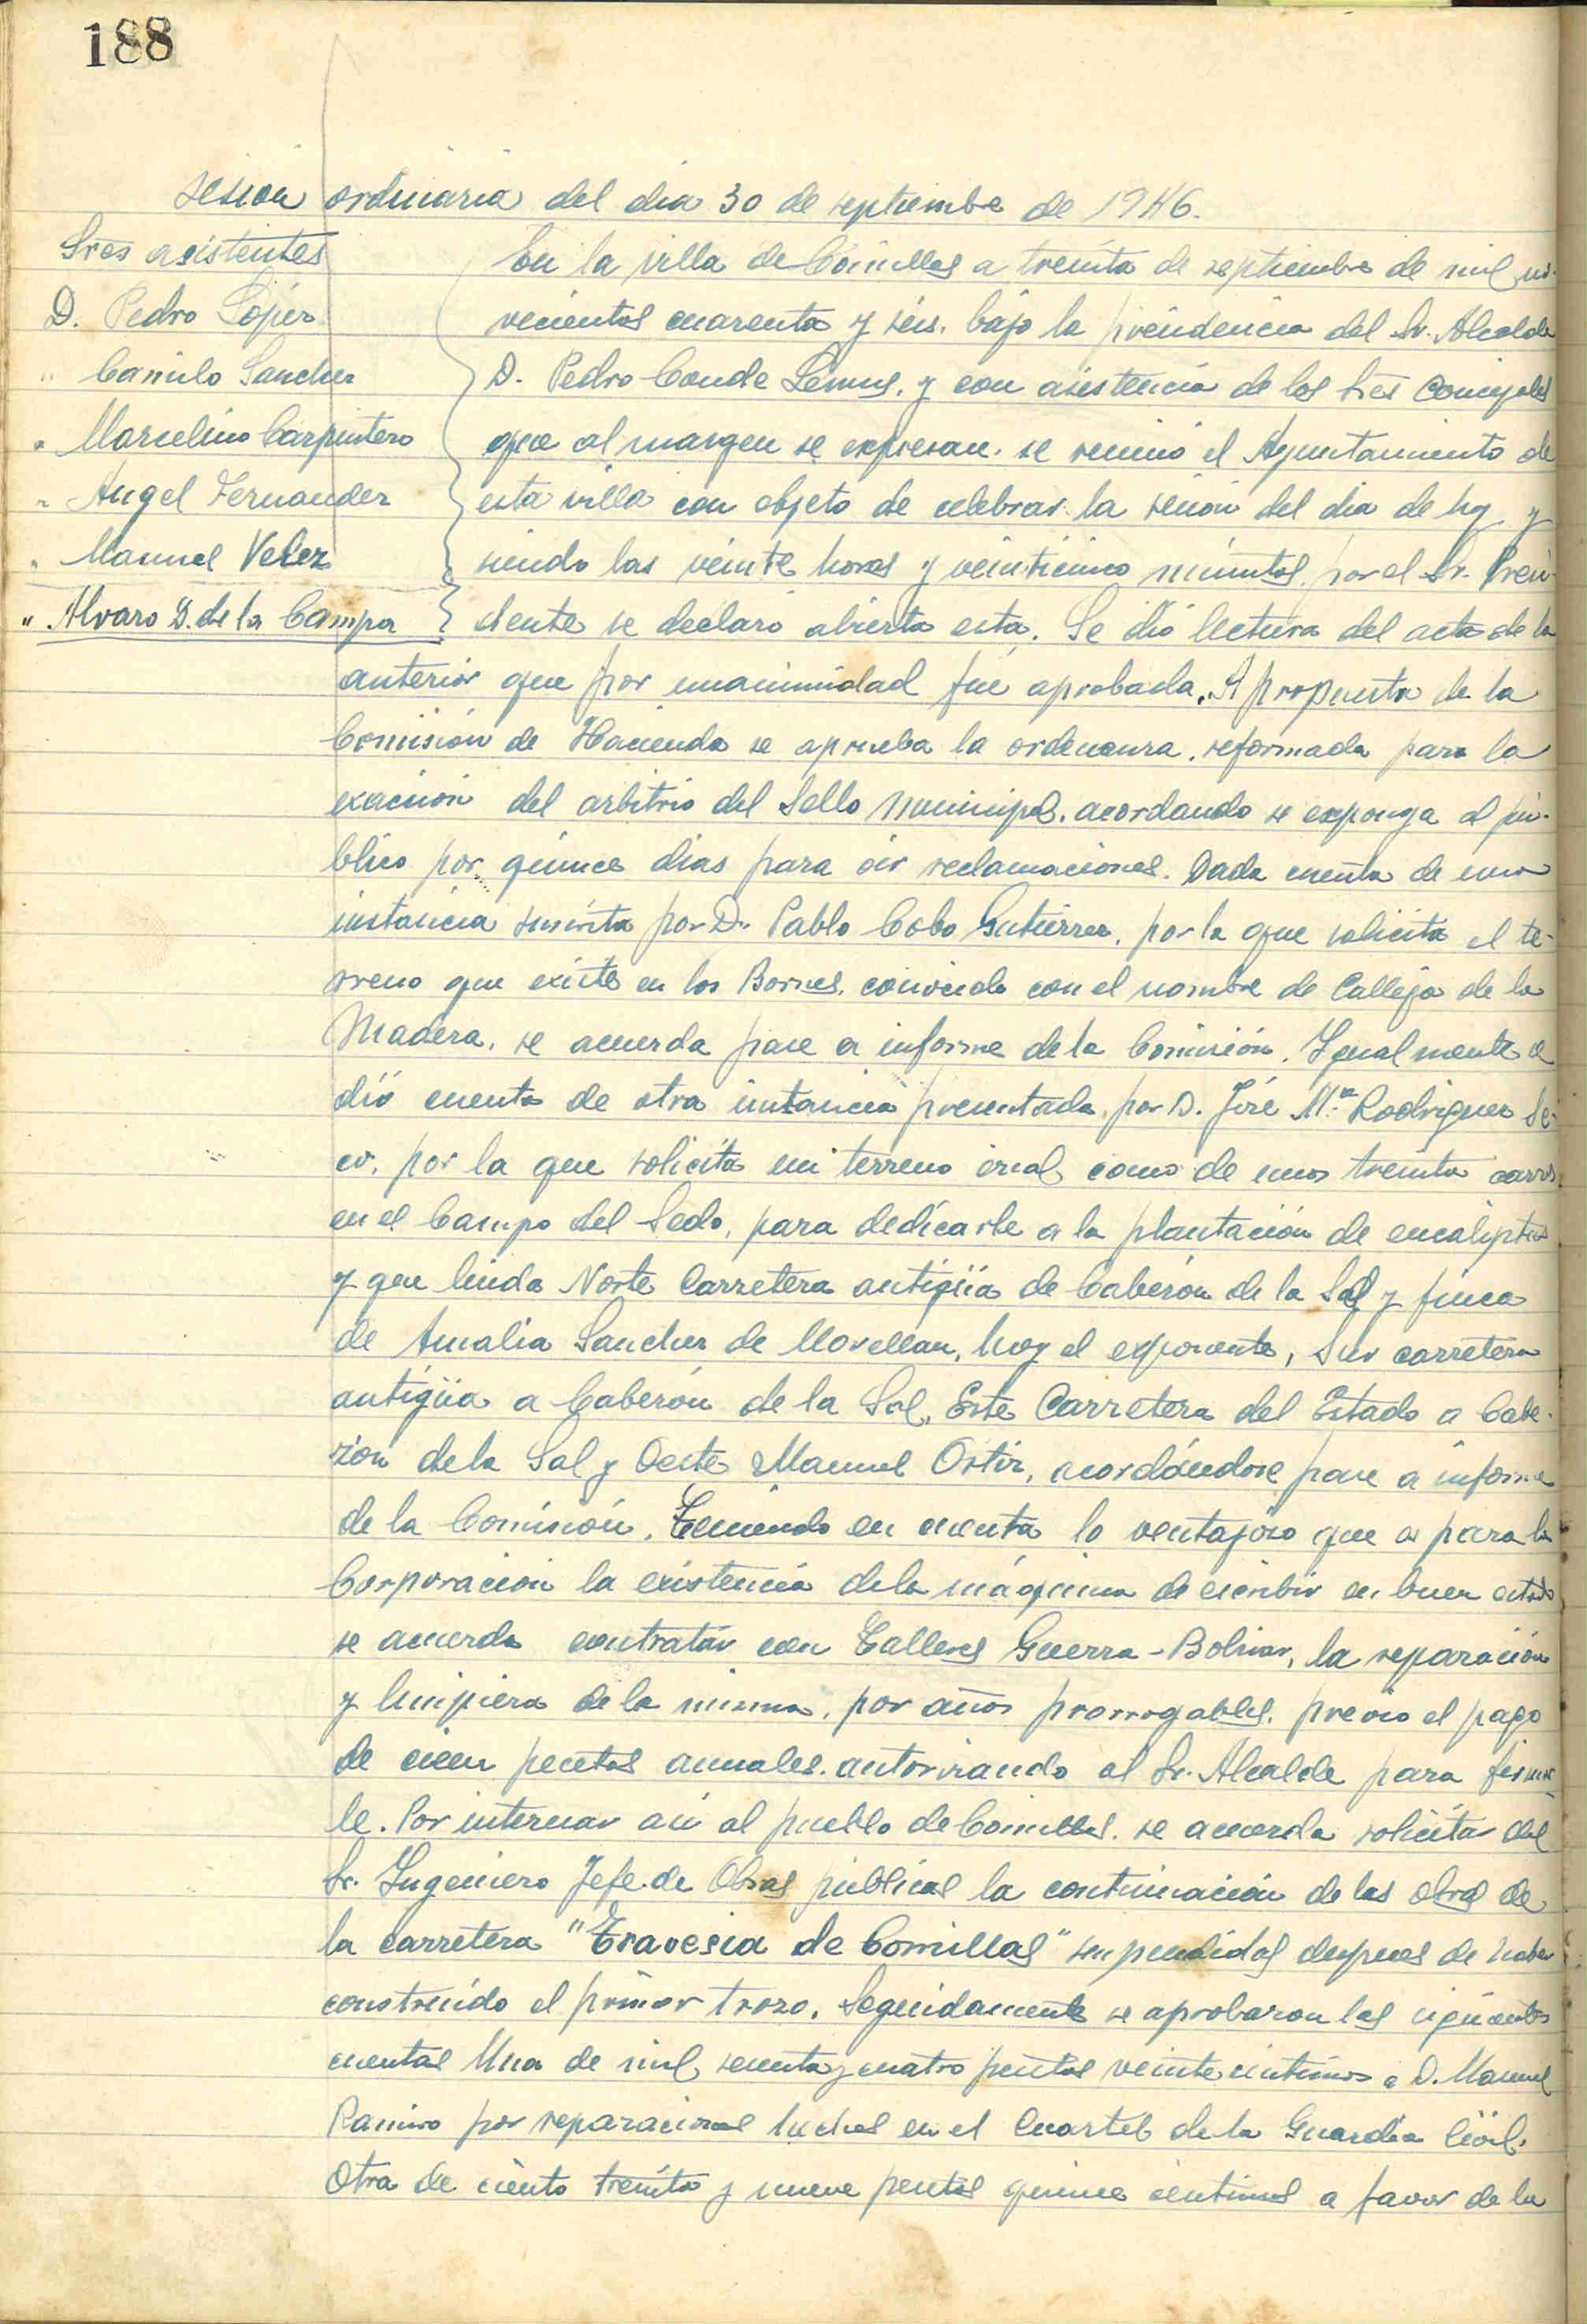 188
Sesion ordinaria del dia 30 de septiembre de 1946.
Sres asistentes
D. Pedro López
" Camilo Sanchez
" Marcelino Carpintero
" Angel Fernandez
" Manuel Velez
" Alvaro D. de la Campa
En la villa de Comillas a treinta de septiembre de mil no-
vecientos cuarenta y seis, bajo la presidencia del Sr. Alcalde
D. Pedro Conde Lemus, y con asistencia de los Sres Concejales
que al margen se expresan, se reunió el Ayuntamiento de
esta villa con objeto de celebrar la sesión del dia de hoy y
siendo las veinte horas y veinticinco minutos, por el Sr. Presi-
dente se declaró abierta esta. Se dió lectura del acta de la
anterior que por unanimidad fué aprobada. A propuesta de la
Comisión de Hacienda se aprueba la ordenanza, reformada para la
exacción del arbitrio del Sello Municipal, acordando se exponga al pú-
blico por quince dias para oir reclamaciones. Dada cuenta de una
instancia suscrita por D. Pablo Cobo Gutierrez, por la que solicita el te-
rreno que existe en los Bornes, conocido con el nombre de Calleja de la
Madera, se acuerda pase a informe de la Comisión. Igualmente se
dió cuenta de otra instancia presentada por D. José Mª Rodriguez Se-
co, por la que solicita un terreno erial como de unos treinta carros
en el Campo del Sedo, para dedicarle a la plantación de eucaliptus
y que linda Norte Carretera antigüa de Cabezón de la Sal y finca
de Amalia Sanchez de Movellan, hoy el exponente, Sur carretera
antigüa a Cabezón de la Sal, Este Carretera del Estado a Cabe-
zón de la Sal y Oeste Manuel Ortiz, acordándose pase a informe
de la Comisión. Teniendo en cuenta lo ventajoso que es para la
Corporación la existencia de la máquina de escribir en buen estado
se acuerda contratar con Talleres Guerra-Bolivar, la reparación
y limpieza de la misma, por años prorrogables, previo el pago
de cien pesetas anuales, autorizando al Sr. Alcalde para firmar-
le. Por interesar asi al pueblo de Comillas, se acuerda solicitar del
Sr. Ingeniero Jefe de Obras públicas la continuación de las obras de
la carretera "Travesia de Comillas" suspendidas despues de haber
construido el primer trozo. Seguidamente se aprobaron las siguientes
cuentas Una de mil y cuatro pesetas veinte centimos a D. Manuel
Ramiro por reparaciones hechas en el Cuartel de la Guardia Civil.
Otra de ciento treinta y nueve pesetas quince centimos a favor de la